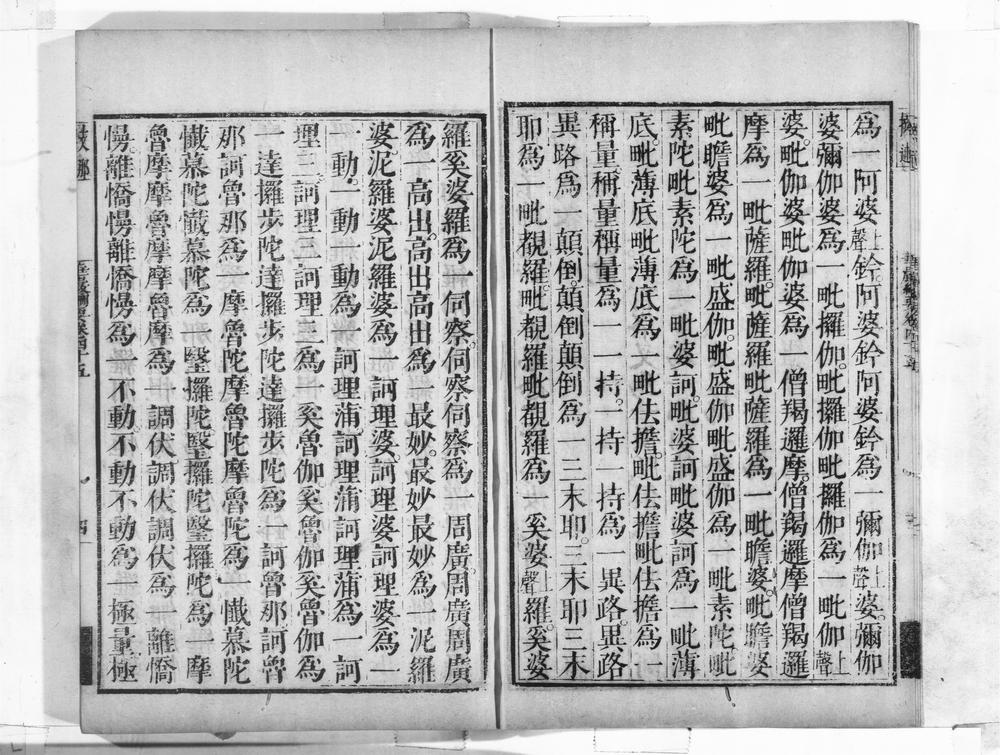 爲一阿婆上聲鈐阿婆鈐阿婆鈐爲一彌伽上聲婆彌伽
婆彌伽婆爲一毗攞伽毗攞伽毗攞伽爲一毗伽上聲
婆毗伽婆毗伽婆爲一僧羯邏摩僧羯邏摩僧羯邏
摩爲一毗薩羅毗薩羅毗薩羅爲一毗瞻婆毗瞻婆
毗瞻婆爲一毗盛伽毗盛伽毗盛伽爲一毗素陀毗
素陀毗素陀爲一毗婆訶毗婆訶毗婆訶爲一毗薄
底毗薄底毗薄底爲一毗佉擔毗佉擔毗佉擔爲一
稱量稱量稱量爲一一持一持一持爲一異路異路
異路爲一顛倒顛倒顛倒爲一三末耶三末耶三末
耶爲一毗覩羅毗覩羅毗覩羅爲一奚婆上聲羅奚婆
羅奚婆羅爲一伺察伺察伺察爲一周廣周廣周廣
爲一高出高出高出爲一最妙最妙最妙爲一泥羅
婆泥羅婆泥羅婆爲一訶理婆訶理婆訶理婆爲一
一動一動一動爲一訶理蒲訶理蒲訶理蒲爲一訶
理三訶理三訶理三爲一奚魯伽奚魯伽奚魯伽爲
一達攞步陀達攞步陀達攞步陀爲一訶魯那訶魯
那訶魯那爲一摩魯陀摩魯陀摩魯陀爲一懺慕陀
懺慕陀懺慕陀爲一瑿攞陀瑿攞陀瑿攞陀爲一摩
魯摩摩魯摩摩魯摩爲一調伏調伏調伏爲一離憍
慢離憍慢離憍慢爲一不動不動不動爲一極量極